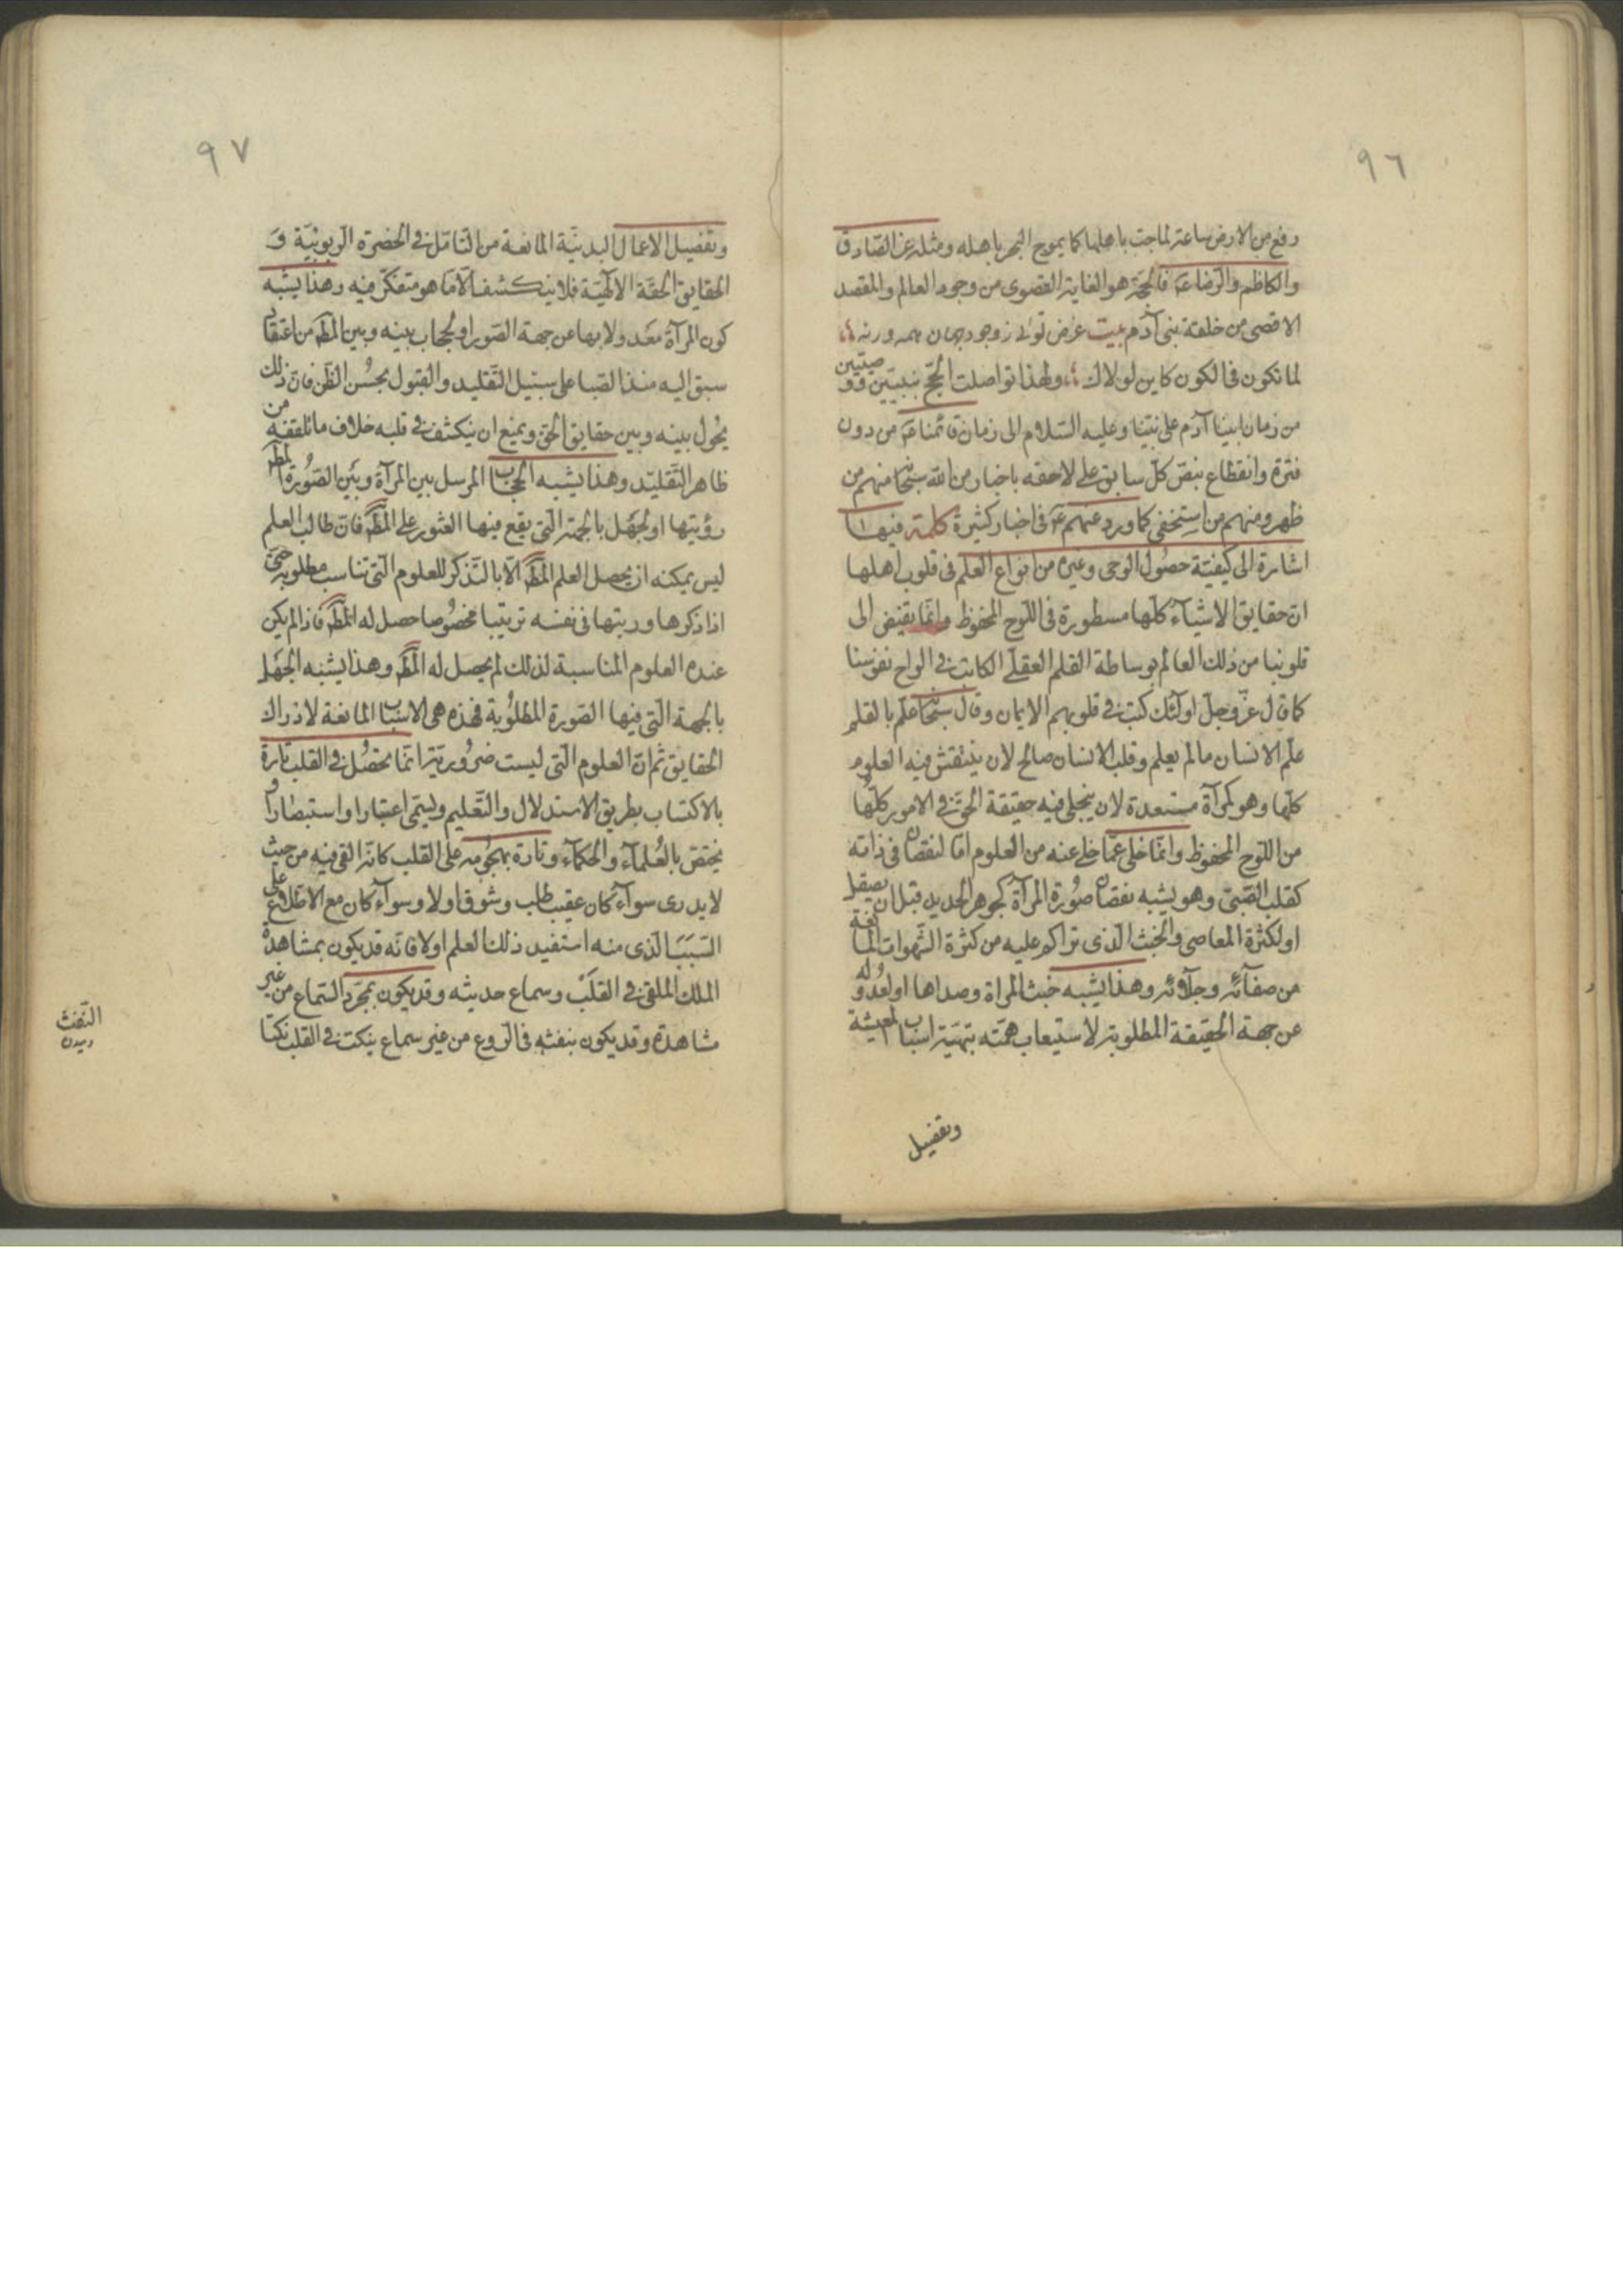 ٩٦
رفع من الارض ساعة لماجت باهلها كما يموج البحر باهله ومثله عن الصّادق
والكاظم والرّضا عم فالحجّة هو الغاية القصوى من وجود العالم والمقصد
الاقصى من خلقة بنى آدم بيت غرض توئى ز وجود جهان همه ورنه
لما تكون فى الكون كاين لولاك ولهذا تواصلت الحجج بنبيّين ووصيّين
من زمان ابينا آدم على نبيّنا وعليه السّلام الى زماننا من دون
فترة وانقطاع بنصّ كلّ سابق على لاحقه باخبار من الله سبحانه منهم من
ظهر ومنهم من استخفى كما ورد عنهم عم فى اخبار كثيرة كلمة فيها
اشارة الى كيفيّة حصول الوحى وغيره من انواع العلم فى قلوب اهلها
انّ حقايق الاشياء كلّها مسطورة فى اللّوح المحفوظ وانّما يفيض الى
قلوبنا من ذلك العالم بوساطة القلم العقلى الكاتب فى الواح نفوسنا
كما قال عزّ وجلّ اولئك كتب فى قلوبهم الايمان وقال سبحانه علّم بالقلم
علّم الانسان ما لم يعلم وقلب الانسان صالح لان ينتقش فيه العلوم
كلّها وهو كمرآة مستعدة لان يتجلى فيه حقيقة الحقّ فى الامور كلّها
من اللّوح المحفوظ وانّما خلى عمّا خلى عنه من العلوم امّا لنقصان فى ذاته
كقلب الصّبىّ وهو يشبه نقصان صورة المرآة كجوهر الحديد قبل ان يصيقل
او لكثرة المعاصى والخبث الّذى تراكم عليه من كثرة الشّهوات المانعة
من صفائه وجلائه وهذا يشبه خبث المرآة وصداها او لعدوله
عن جهة الحقيقة المطلوبة لاستيعاب همّته بتهيئة اسباب المعيشة
وتفضيل
٩٧
وتفضيل الاعمال البدنيّة المانعة من التّامّل فى الحضرة الرّبوبيّة و
الحقايق الحقّة الالهيّة فلا ينكشف الّا ما هو متفكّر فيه وهذا يشبه
كون المرآة معدولا بها عن جهة الصّور او لحجاب بينه وبين المط من اعتقاد
سبق اليه منذ الصّبا على سبيل التّقليد والقبول بحسن الظّن فانّ ذلك
يحول بينه وبين حقايق الحقّ ويمنع ان ينكشف فى قلبه خلاف ما تلقفه من
ظاهر التّقليد وهذا يشبه الحجاب المرسل بين المرآة وبين الصّورة المط
رؤيتها او لجهل بالجهة الّتى يقع فيها العثور على المط فانّ طالب العلم
ليس يمكنه ان يحصل العلم المط الّا بالتّذكر للعلوم الّتى تناسب مطلوبه حتّى
اذا ذكرها ورتبها فى نفسه ترتيبا مخصوصا حصل له المط فاذا لم يكن
عنده العلوم المناسبة لذلك لم يحصل له المط وهذا يشبه الجهل
بالجهة الّتى فيها الصّورة المطلوبة فهذه هى الاسباب المانعة لادراك
الحقايق ثمّ انّ العلوم الّتى ليست ضروريّة انّما تحصل فى القلب تارة
بالاكتساب بطريق الاستدلال والتّعليم ويسمّى اعتبارا واستبصارا و
يختصّ بالعلماء والحكماء وتارة بهجومه على القلب كانّه القى فيه من حيث
لا يدرى سواء كان عقيب طلب وشوق او لا وسواء كان مع الاطّلاع على
السّبب الّذى منه استفيد ذلك العلم او لا فانّه قد يكون بمشاهدة
الملك الملقى فى القلب وسماع حديثه وقد يكون بمجرّد السّماع من غير
مشاهدة وقد يكون بنفثه فى الرّوع من غير سماع ينكت فى القلب نكتا
النّفث
دميدن